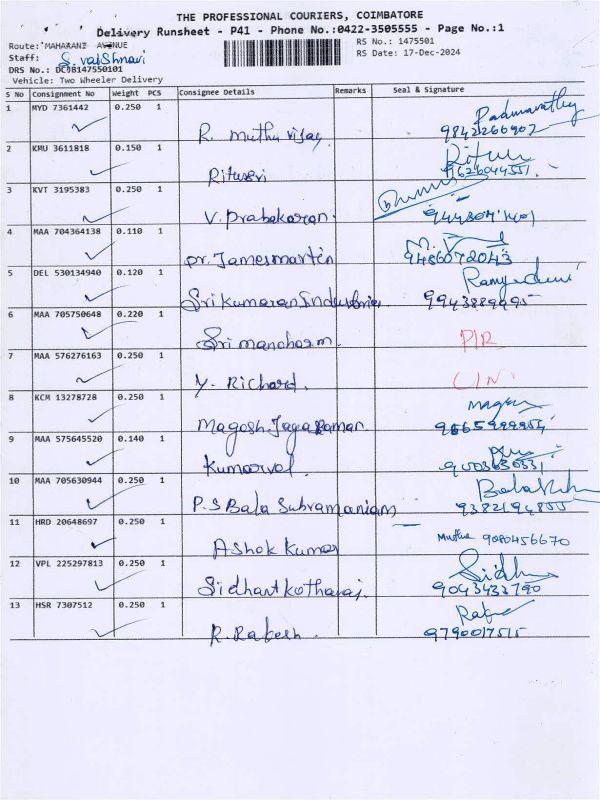 THE PROFESSIONAL COURIERS, COIMBATORE
Delivery Runsheet - P41 - Phone No.:0422-3505555 - Page No.:1
Route: MAHARANI AVENUE RS No.: 1475501
Staff: S. Vaishnavi RS Date: 17-Dec-2024
DRS No.: DC0B147550101
Vehicle: Two Wheeler Delivery
S No Consignment No Weight PCS Consignee Details Remarks Seal & Signature
1 MYD 7361442 0.250 1
R. Muthu Vijay Padmavathy
9842266902
2 KMU 3611818 0.150 1
Ritusri
3 KVT 3195383 0.250 1
V. Prabakaran
4 MAA 704364138 0.110 1
Dr. Jamesmartin 9486072043
5 DEL 530134940 0.120 1
Sri Kumaran Industries 9943889995
6 MAA 705750648 0.220 1
Sri manoharm.
7 MAA 576276163 0.250 1
Y. Richard.
8 KCM 13278728 0.250 1
Magesh Jaga Raman
9 MAA 575645520 0.140 1
Kumarvel
10 MAA 705630944 0.250 1
P.S Bala Subramaniam 9382194855
11 HRD 20648697 0.250 1
Ashok Kumar 9080456670
12 VPL 225297813 0.250 1
Sidhart Kotharaj 9043433790
13 HSR 7307512 0.250 1
R. Rakesh 9790017515